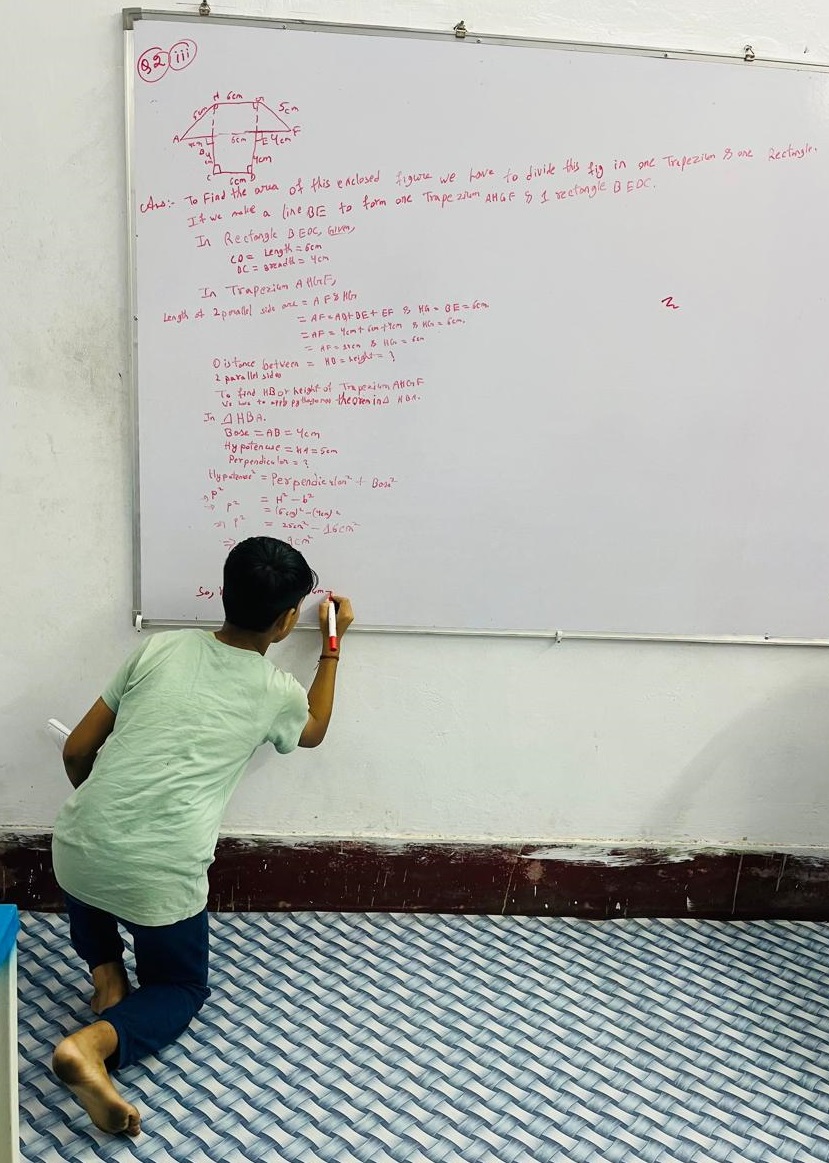 Q2 iii
H 6cm G
5cm 5cm
A F
4cm 6cm E 4cm
B
4cm 4cm
C 6cm D
Ans:- To Find the area of this enclosed figure we have to divide this fig in one Trapezium & one Rectangle.
If we make a line BE to form one Trapezium AHGF & 1 rectangle BEDC.
In Rectangle BEDC, Given,
CD = Length = 6cm
BC = Breadth = 4cm
In Trapezium AHGF,
Length of 2 parallel side are = AF & HG
= AF = AB + BE + EF & HG = BE = 6cm
= AF = 4cm + 6cm + 4cm & HG = 6cm.
= AF = 14cm & HG = 6cm
Distance between = HB = height = ?
2 parallel sides
To find HB or height of Trapezium AHGF
we have to apply pythagoras theorem in Δ HBA.
In Δ HBA.
Base = AB = 4cm
Hypotenuse = HA = 5cm
Perpendicular = ?
Hypotenuse² = Perpendicular² + Base²
⇒ P² = H² - b²
⇒ P² = (5cm)² - (4cm)²
⇒ P² = 25cm² - 16cm²
⇒ 9cm²
So,